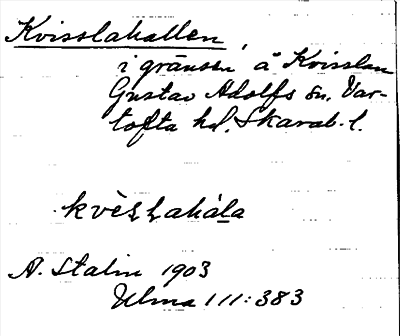 Kvisslahallen,
i gränsen å Kvisslan
Gustav Adolfs sn. Var-
tofta hd. Skarab. l.
kvèʂʂahála
A. Stalin 1903
Ulma 111:383